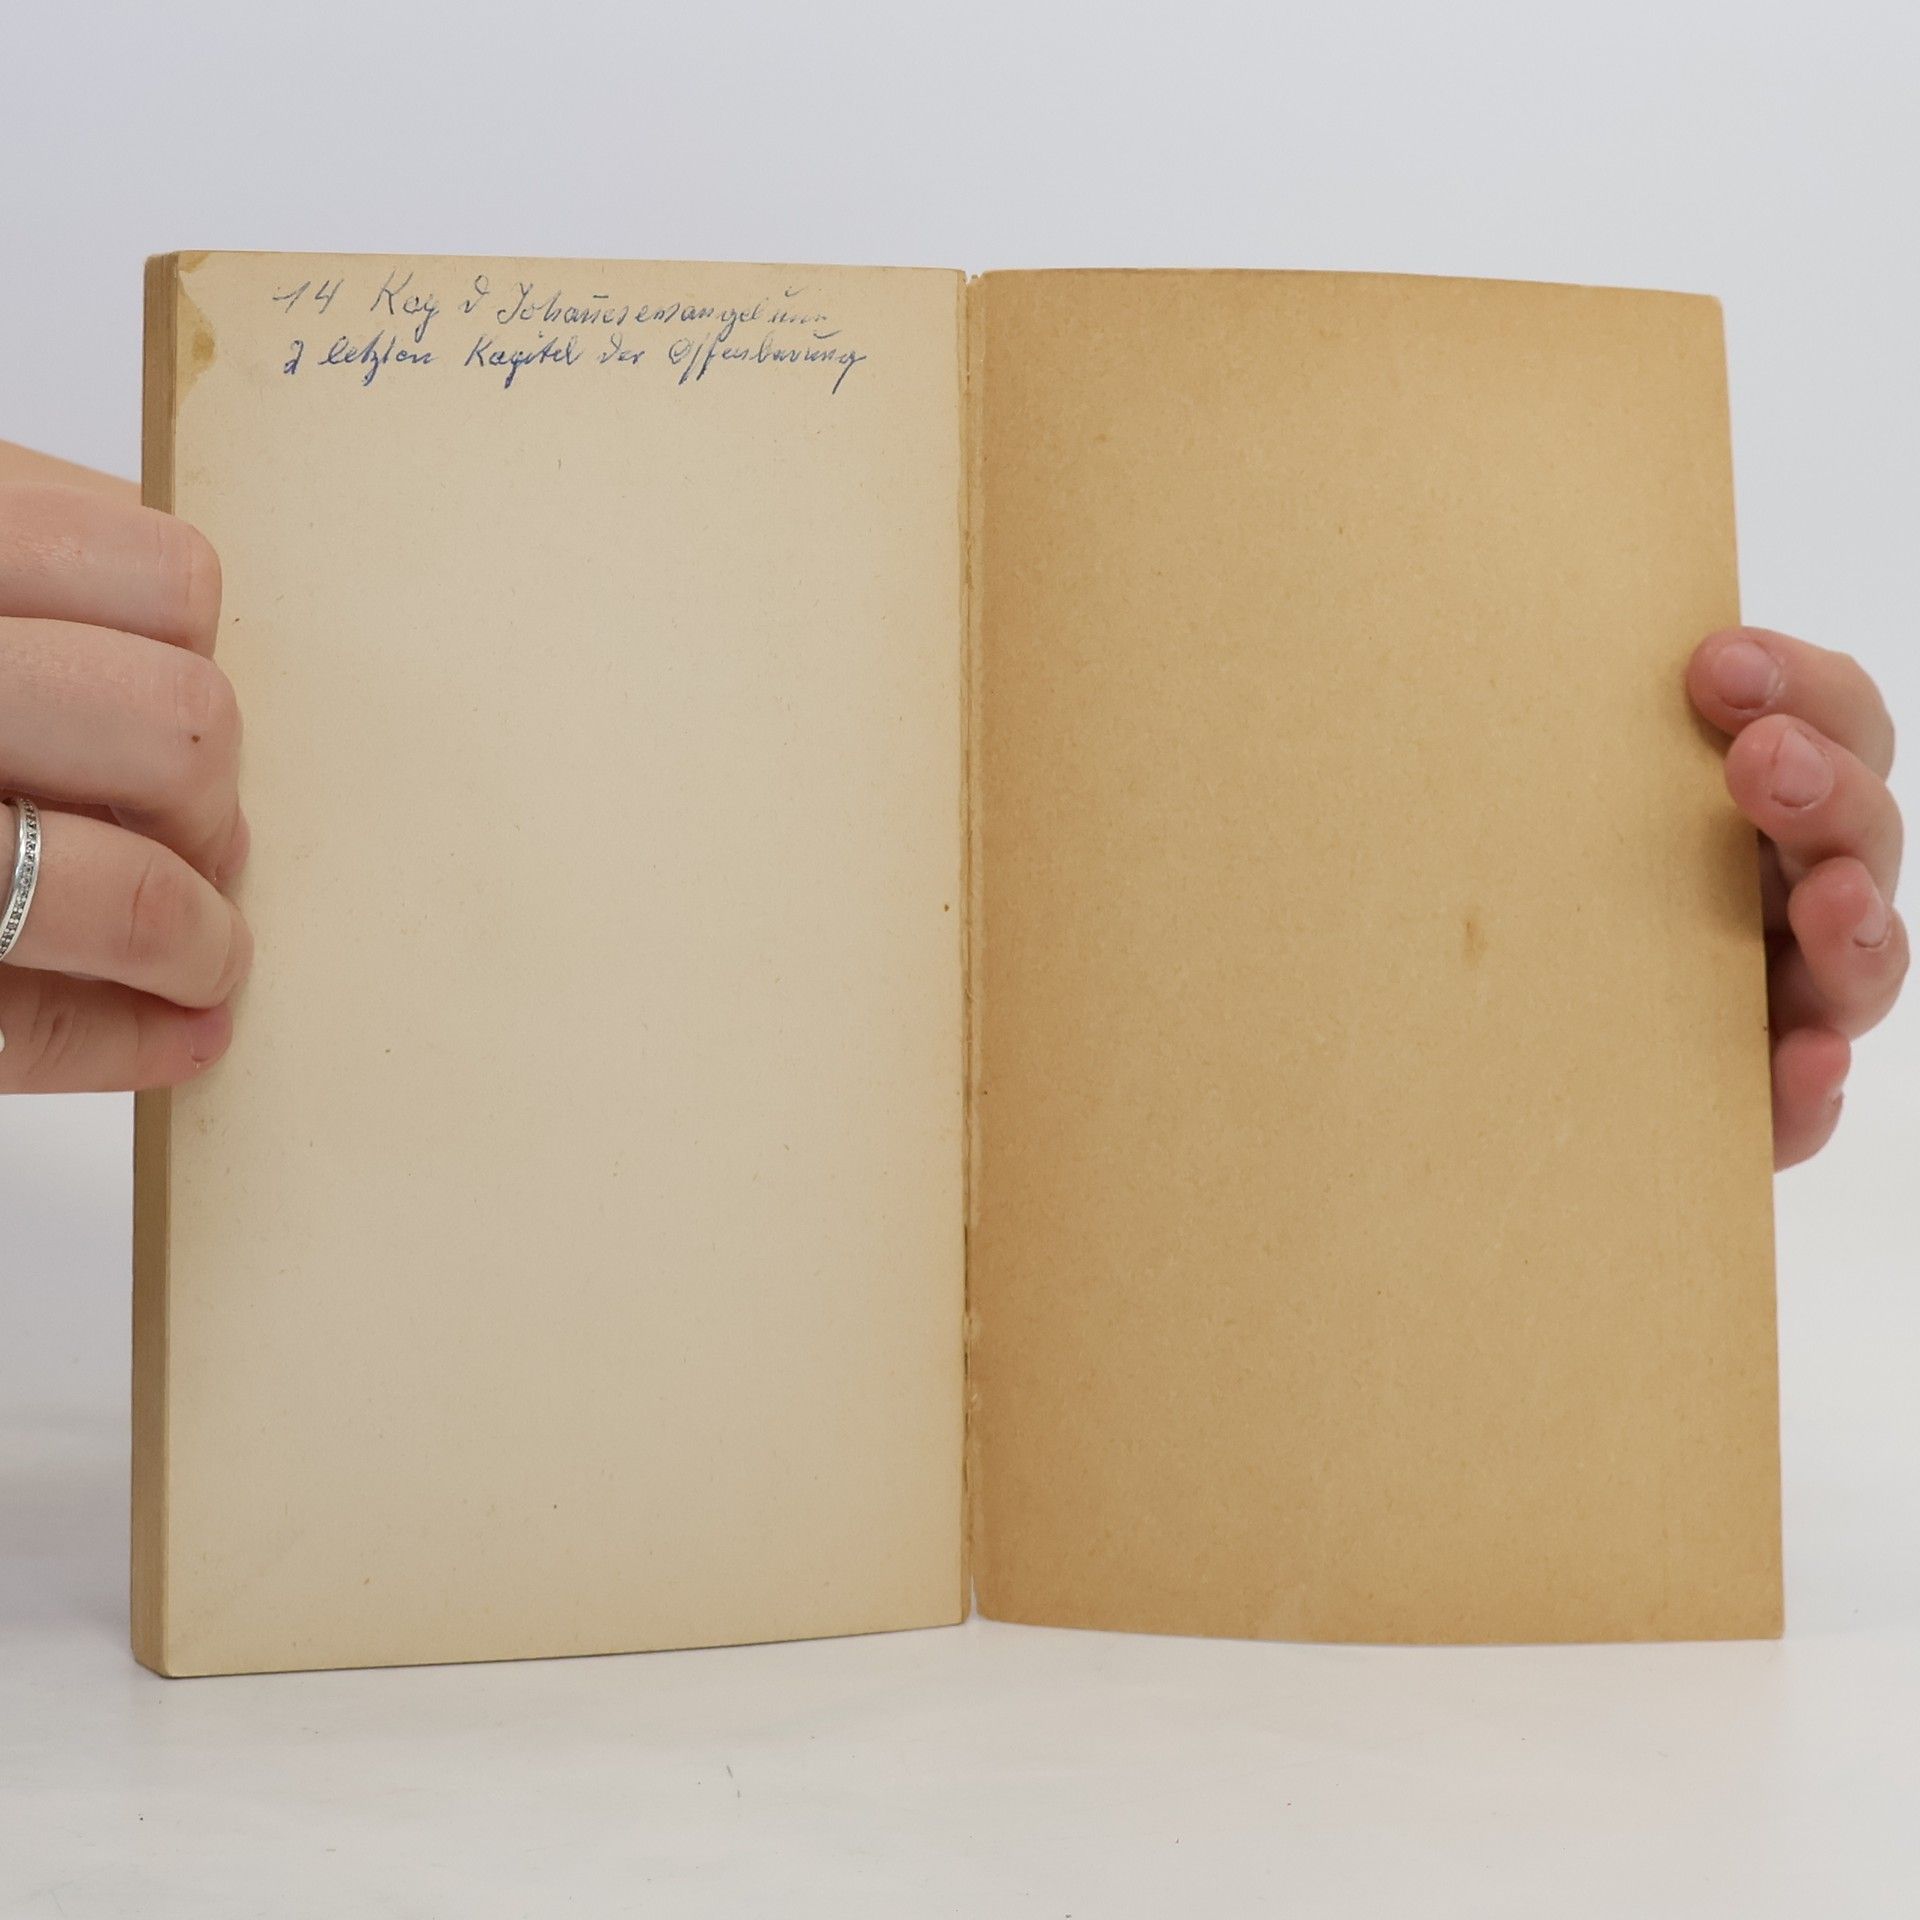 14 Kap d Johannesevangelium
2 letzten Kapitel der Offenbarung